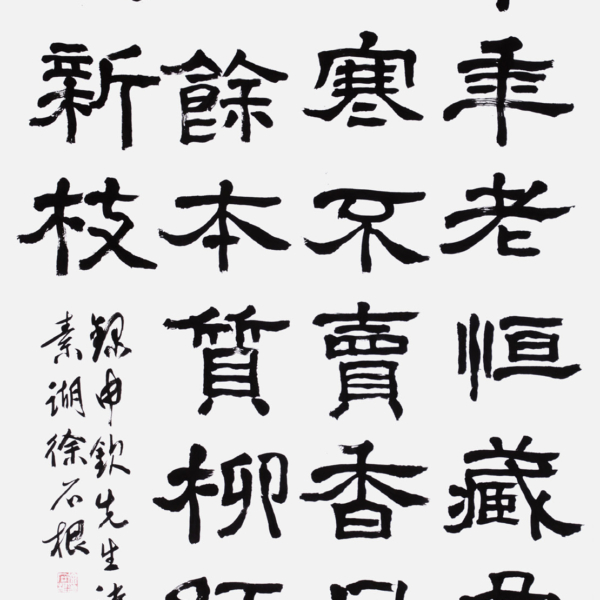 年老恒藏
寒不賣香
餘本質柳
新枝
錄申欽先生
素湖徐石根